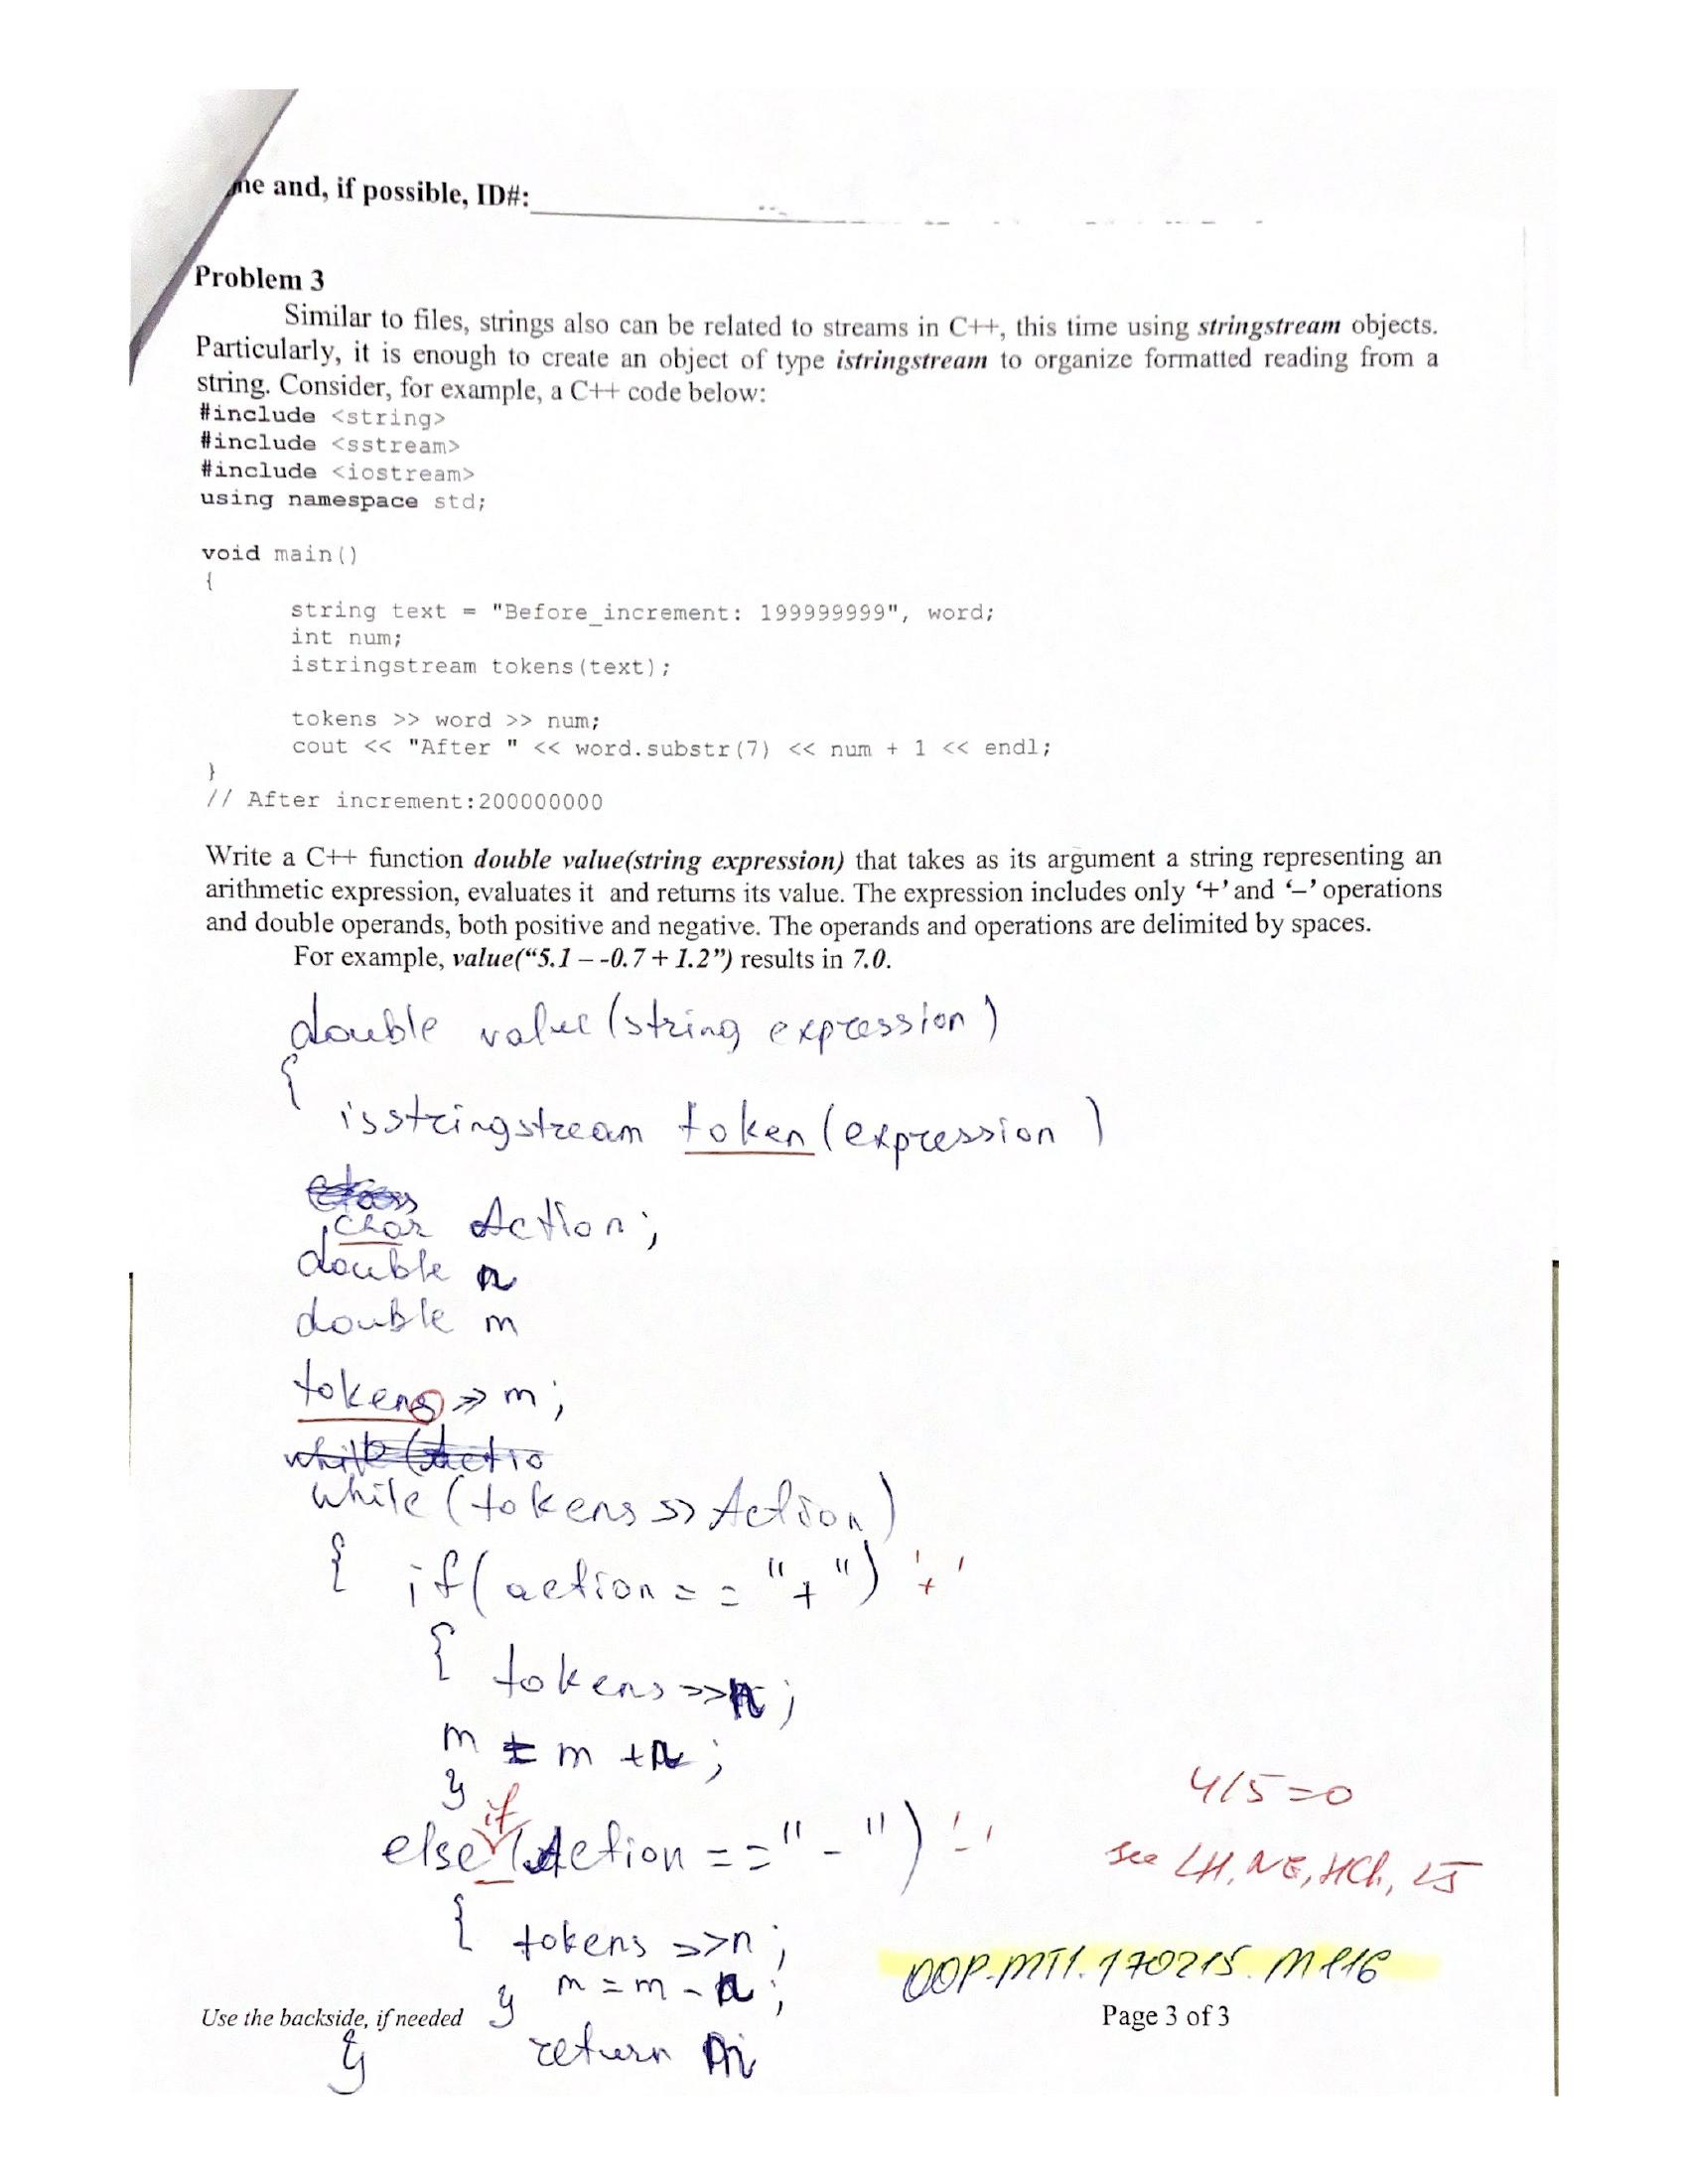 me and, if possible, ID#:
Problem 3
Similar to files, strings also can be related to streams in C++, this time using stringstream objects.
Particularly, it is enough to create an object of type istringstream to organize formatted reading from a
string. Consider, for example, a C++ code below:
#include <string>
#include <sstream>
#include <iostream>
using namespace std;
void main()
{
string text = "Before_increment: 199999999", word;
int num;
istringstream tokens(text);
tokens >> word >> num;
cout << "After " << word.substr(7) << num + 1 << endl;
}
// After increment:200000000
Write a C++ function double value(string expression) that takes as its argument a string representing an
arithmetic expression, evaluates it and returns its value. The expression includes only ‘+’ and ‘–’ operations
and double operands, both positive and negative. The operands and operations are delimited by spaces.
For example, value(“5.1 – -0.7 + 1.2”) results in 7.0.
double value (string expression)
{
isstringstream token (expression)
char Action;
double n
double m
tokens >> m;
while (Actio
while (tokens >> Action)
{ if (action == "+") '+'
{ tokens >> n;
m = m + n;
}
if
else (Action == "-") '-'
{ tokens >> n;
m = m - n;
}
4/5=0
see LH, NE, HCh, LJ
OOP.MT1.170215.M116
Use the backside, if needed
Page 3 of 3
} return